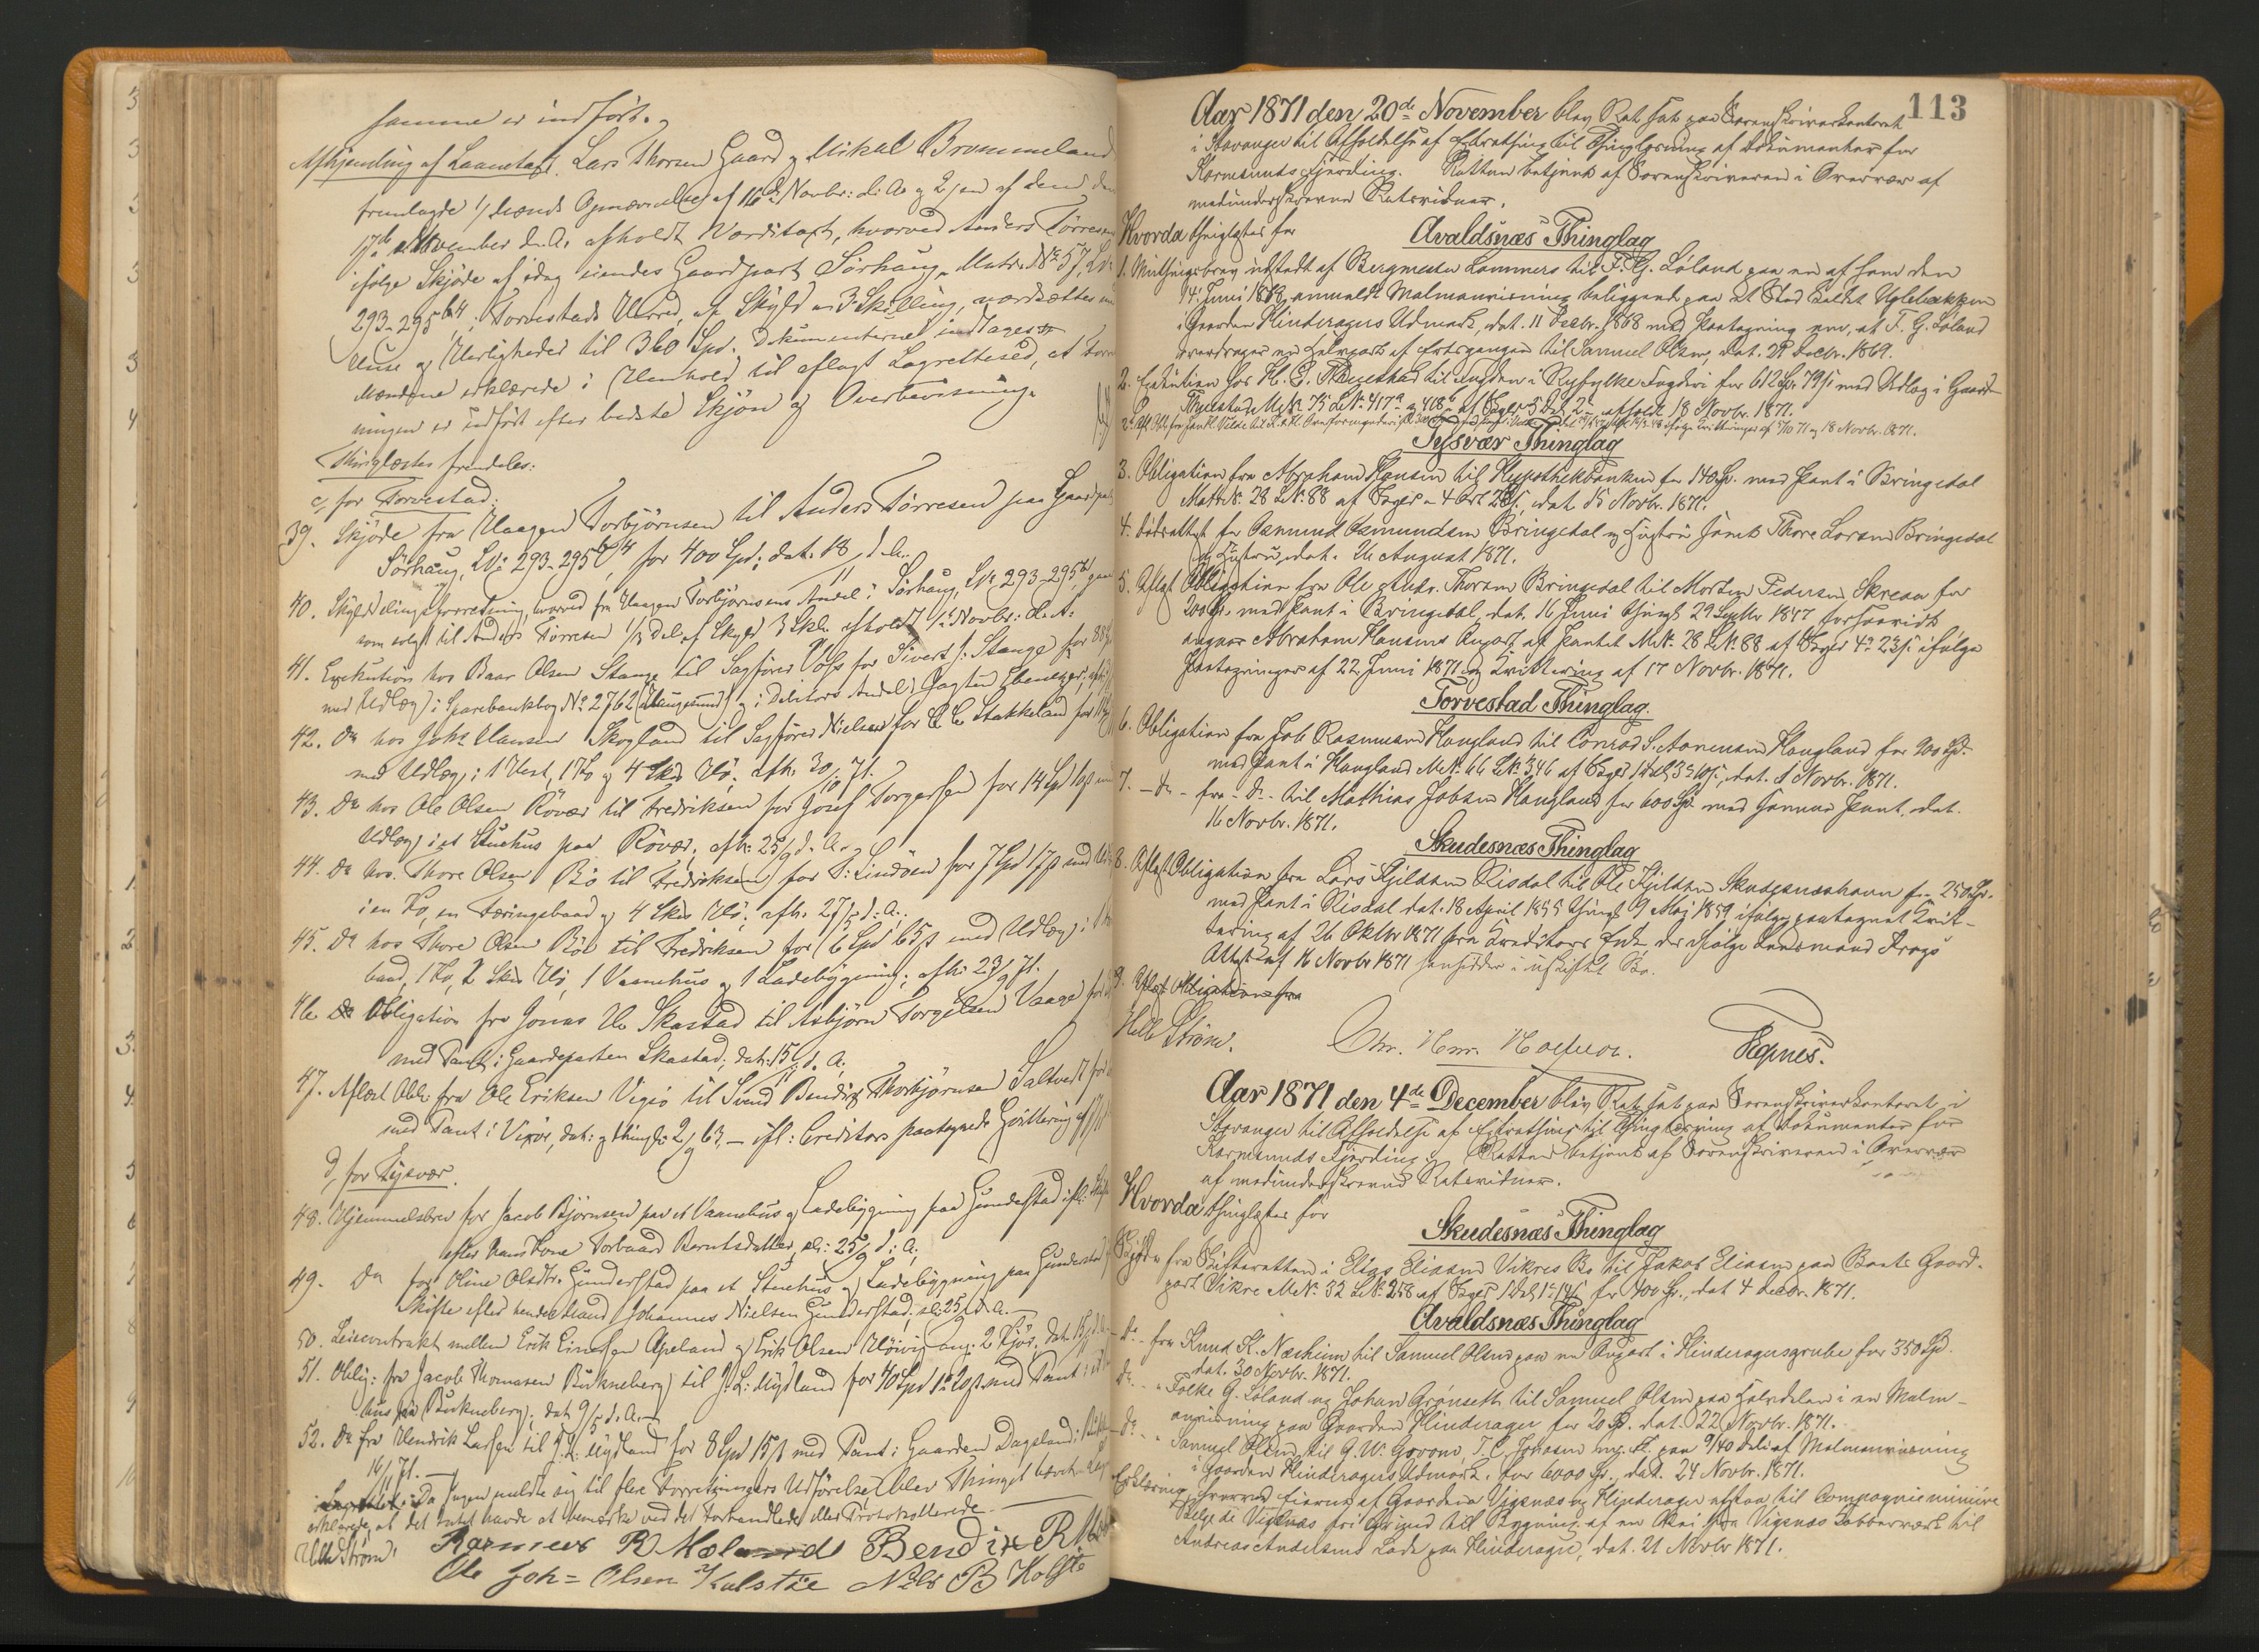 samme er indført.
Afhjemling af Laanetaxt. Lars Thorsen Gaard og Mikal Brommeland
fremlagde Opnævnelse af 16de Novbr: d. A. og 2 den af dem den
17de November d. A. afholdt Værditaxt, hvorved Anders Tørresens
ifølge Skjøde af idag eiendes Gaardpart Sørhaug, Matr. No 57, LNo
293-295 b 4, i Torvestads Herred, af Skyld 3 Skilling, værdsættes
Huse og Herligheder til 360 Spd. Dokumenterne indtages
Mændene erklærede i Henhold til aflagt Lagrettesed, at Forret
ningen er udført efter bedste Skjøn og Overbevisning.
Thinglæstes fremdeles:
c, for Torvestad:
39. Skjøde fra Haagen Torbjørnsen til Anders Tørresen paa Gaardpart
Sørhaug, LNo 293-295 b 4 for 400 Spd; dat. 18/11 d. A.
40. Skylddelingsforretning, hvorved fra Haagen Torbjørnsens Andel i Sørhaug, LNo 293-295 b,
som solgt til Anders Tørresen 1/3 Del af Skyld 3 Skl. afholdt 1ste Novbr: d. A.
41. Exekution hos Baar Olsen Stange til Sagfører Voss for Sivert J. Stange for 88
med Udlæg i Sparebankbog No 2762 (Haugesund) og i Debitors Andel i Jagten Ebenezer,
42. Do hos Johs Hansen Skogland til Sagfører Nielsen for C. C. Stakkeland for
med Udlæg i 1 Hest, 1 Ko og 4 Skes Hø. afh. 30/10 71.
43. Do hos Ole Olsen Røvær til Fredriksen for Josef Torgersen for 14 Spd
Udlæg i et Stuehus paa Røvær, afh. 25/9 d. A.
44. Do hos Thore Olsen Bø til Fredriksen for S. Lindøen for 7 Spd 17 s med
i en Ko, en Færingsbaad og 4 Skes Hø; afh. 27/5 d. A.
45. Do hos Thore Olsen Bø til Fredriksen for 6 Spd 65 s med Udlæg i
baad, 1 Ko, 2 Skes Hø, 1 Vaanehus og 1 Ladebygning; afh. 23/9 71.
46 Obligation fra Jonas H. Skastad til Asbjørn Torgilsen Vaage for
med Pant i Gaardeparten Skastad; dat. 15/11 d. A.
47. Aflæst Obl. fra Ole Eriksen Vigsø til Svend Bendix Thorbjørnsen Saltvedt for
med Pant i Vixør, dat. og thingl. 2/9 63, – ifl: Creditors paategnede Qvittering af
d, for Tysvær.
48. Hjemmelsbrev for Jacob Bjørnsen paa et Vaanehus og Ladebygning paa Gunderstad ifl. Skifte
efter hans Kone Torbaard Berntsdatter, sl: 25/9 d. A.
49. Do for Oline Olsdtr. Gunderstad paa et Stuehus og Ladebygning paa Gunderstad
Skifte efter hendes Mand Johannes Nielsen Gunderstad, sl: 25/9 d. A.
50. Leiecontrakt mellem Erik Einersen Apeland og Erik Olsen Høivig ang: 2 Kjør, dat.
51. Oblig: fra Jacob Thomasen Bukneberg til J. L. Mydland for 40 Spd med Pant i
hus paa Bukneberg; dat 9/5 d. A.
52. Do fra Hendrik Larsen til J. L. Mydland for 8 Spd 15 s med Pant i Gaarden Dagsland;
14/11 71.
Da Ingen meldte sig til flere Forretningers Udførelse blev Thinget hævet.
erklærede, at det intet havde at bemærke ved det Forhandlede eller Protokollerede.
Helle Strøm. Rasmus R Mæland Bendix R.
Ole Joh= Olsen Kalstøe Nils B Holste
113
Aar 1871 den 20de November blev Ret sat paa Sorenskriverkontoret
i Stavanger til Afholdelse af Extrathing til Thinglæsning af Dokumenter for
Karmsunds Fjerding. Retten betjent af Sorenskriveren i Overvær af
medunderskrevne Retsvidner.
Hvorda thinglæstes for Avaldsnæs Thinglag
1. Muthingsbrev udstedt af Bergmester Lammers til F. G. Løland paa en af ham den
14. Juni 1868 anmeldt Malmanvisning beliggende paa et Sted kaldet Uglebækken
i Gaarden Hinderagers Udmark, dat. 11 Decbr. 1868 med Paategning om, at F. G. Løland
overdrager en Halvpart af Forkgangen til Samuel Olsen, dat. 29 Decbr. 1869.
2. Exekution hos H. E. Thuestad til Fogden i Ryfylke Fogderi for 612 Spd 79 s med Udlæg i Gaard
Thuestad M.No. 75 L.No. 417a og 418b af Skyld 5 Dlr 2 afholdt 18 Novbr. 1871.
Tysvær Thinglag
3. Obligation fra Abraham Hansen til Hypothekbanken for 140 Sp. med Pant i Bringedal
Matr.No. 28 L.No. 88 af Skyld 4 Ort 23 s, dat. 15 Novbr. 1871.
4. Føderaadtægt for Asmund Asmundsen Bringedal og Hustru samt Thore Larsen Bringedal
og Hustru, dat. 26 August 1871.
5. Aflæst Obligation fra Ole Andr. Thorsen Bringedal til Morten Pedersen Skreaa for
200 Sp. med Pant i Bringedal, dat. 16 Juni thingl. 29 Septbr 1847 forsaavidt
angaar Abraham Hansens Anpart af Pantet M.No. 28 L.No. 88 af Skyld 4 o 23 s ifølge
Paategninger af 22 Juni 1871 og Kvittering af 17 Novbr. 1871.
Torvestad Thinglag.
6. Obligation fra Job Rasmussen Haugland til Conrad S. Aanensen Haugland for 200 Spd
med Pant i Haugland M.No. 66 L.No. 346 af Skyld 1 Dlr 3 o 10 s, dat. 1 Novbr. 1871.
7. – do – fra – do – til Mathias Jobsen Haugland for 600 Sp. med samme Pant, dat.
16 Novbr. 1871.
Skudesnæs Thinglag
8. Aflæst Obligation fra Lars Kjeldsen Risdal til Ole Kjeldsen Skudesnæshavn for 250 Sp.
med Pant i Risdal dat. 18 April 1855 thingl. 9 Maj 1859 ifølge paategnet Kvit-
tering af 26 Oktbr 1871 fra Kreditors Enke, der ifølge Lensmand Krags
Attest af 16 Novbr 1871 hensidder i uskiftet Bo.
9. Aflæst Obligation fra
Helle Strøm. Egenes.
Aar 1871 den 4de December blev Ret sat paa Sorenskriverkontoret i
Stavanger til Afholdelse af Extrathing til Thinglæsning af Dokumenter for
Karmsunds Fjerding. Retten betjent af Sorenskriveren i Overvær
af medunderskrevne Retsvidner.
Hvorda thinglæstes for
Skudesnæs Thinglag
Skjøde fra Skifteretten i Elias Eliasen Vikres Bo til Jakob Eliasen paa Boets Gaard-
part Vikre M.No. 32 L.No. 258 af Skyld 1 Dlr 1 o 14 s for 400 Sp., dat 4 Decbr. 1871.
Avaldsnæs Thinglag
– do – fra Knud K. Næsheim til Samuel Olsen paa en Anpart i Hinderagersgrube for 350 Spd.
dat. 30 Novbr. 1871.
do – " Folke G. Løland og Johan Grønseth til Samuel Olsen paa Halvdelen i en Malm-
anvisning paa Gaarden Hinderager for 20 Sp. dat. 22 Novbr. 1871.
– do – " Samuel Olsen til G. W. T. C. Johnsen m. fl. paa 9/40 Dele af Malmanvisning
i Gaarden Hinderagers Udmark, for 6000 Sp., dat. 24 Novbr. 1871.
Erklæring, hvorved Eierne af Gaardene Vigsnæs og Hinderager afstaa til Compagnie minière
Belge de Vigsnæs fri Grund til Bygning af en Vei fra Vigsnæs Kobberværk til
Andreas Andersens Lade paa Hinderager, dat. 21 Novbr 1871.